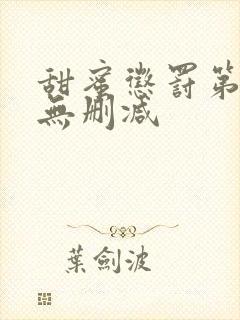 甜蜜懲罰第
無刪減
葉劍波